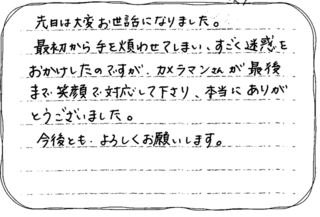 先日は大変お世話になりました。
最初から手を煩わせてしまい、すごく迷惑を
おかけしたのですが、カメラマンさんが最後
まで笑顔で対応して下さり、本当にありが
とうございました。
今後とも、よろしくお願いします。